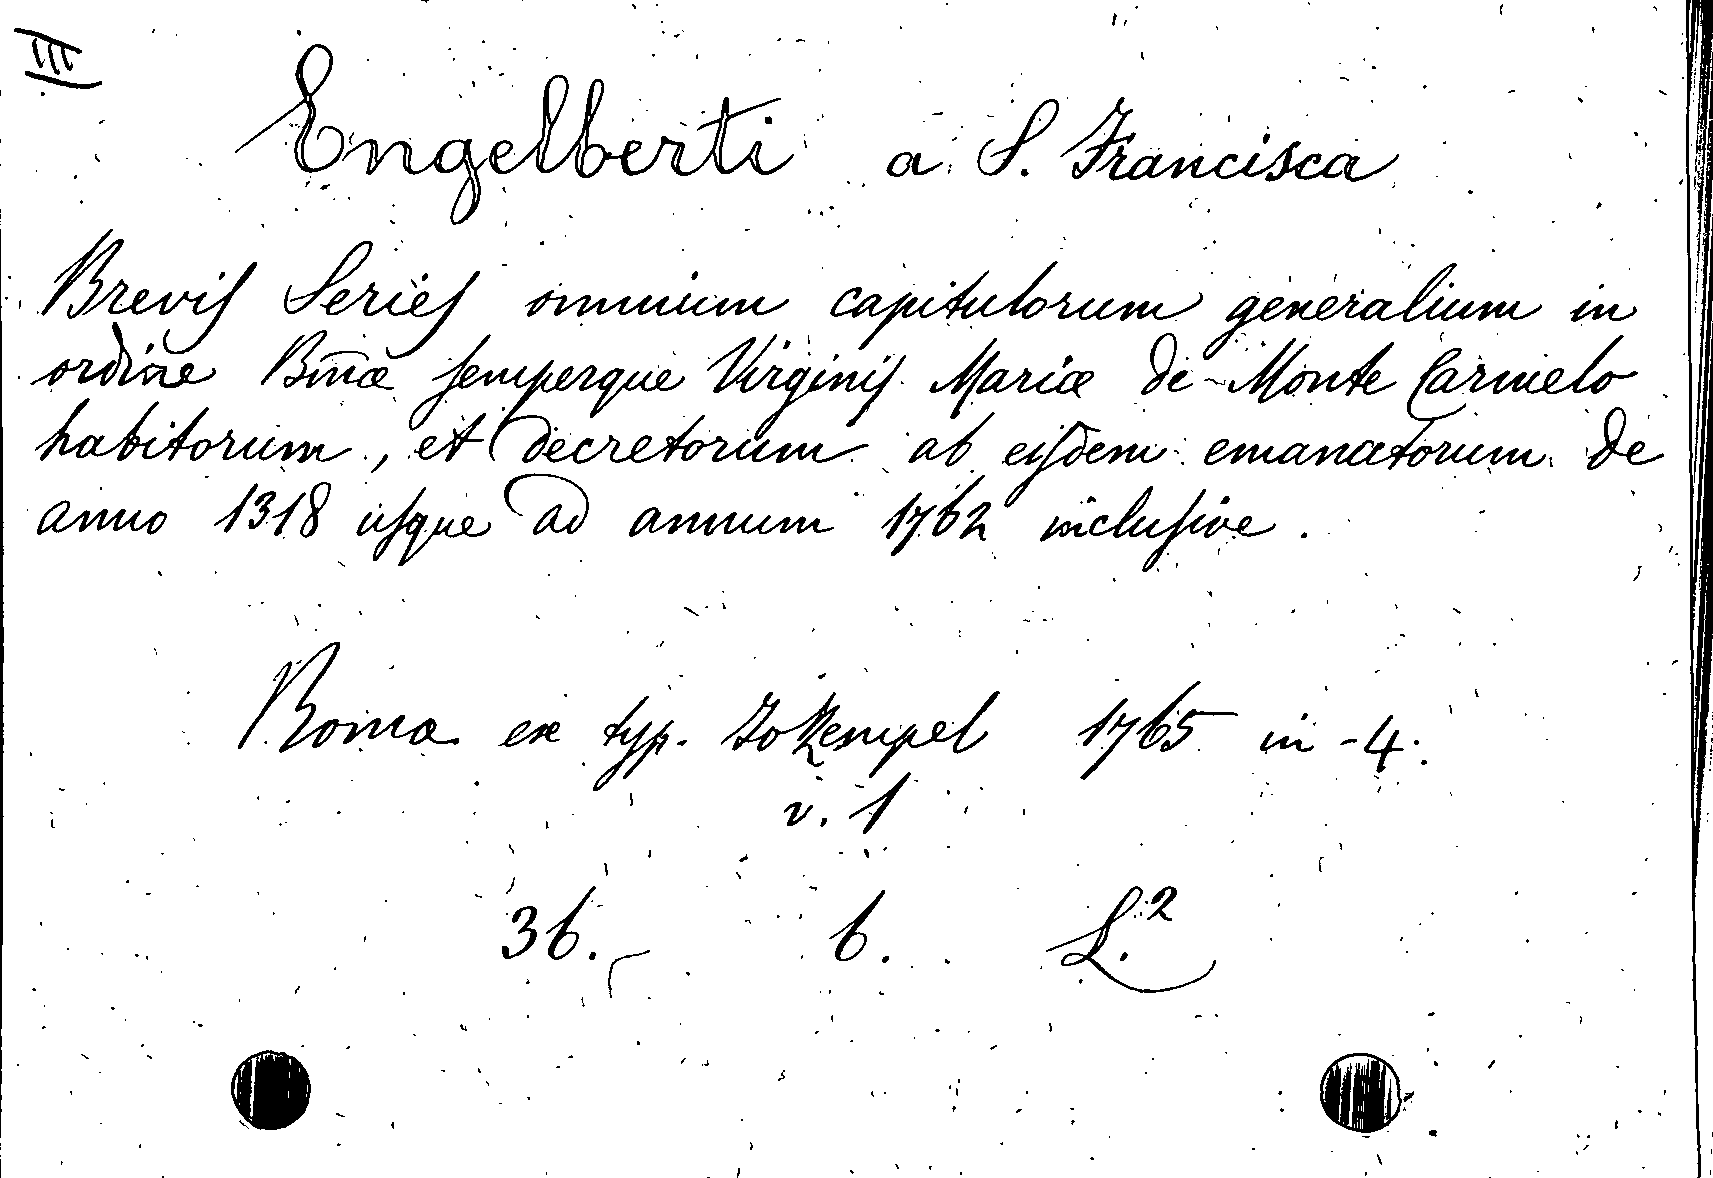 III
Engelberti a S. Francisca
Brevis Series omnium capitulorum generalium in
ordine Bm̃æ semperque Virginis Mariæ de Monte Carmelo
habitorum, et decretorum ab eisdem emanatorum de
anno 1318 usque ad annum 1762 inclusive.
Romæ ex typ. Zokempel 1765 in-4.
v. 1
36. 6. L.²